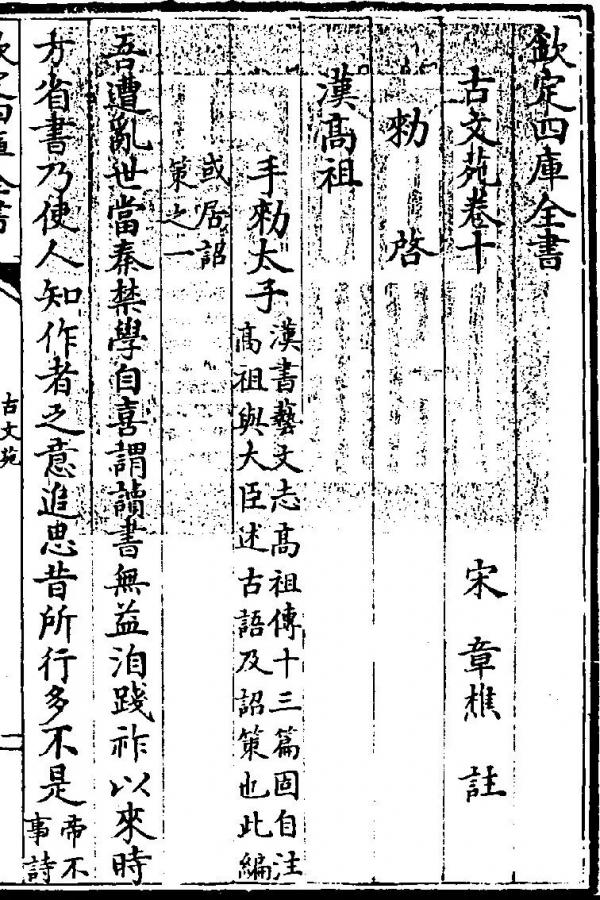 欽定四庫全書
古文苑卷十
宋 章樵 註
勑 啓
漢高祖
手勑太子
漢書藝文志高祖傳十三篇固自注
高祖與大臣述古語及詔策也此編
或居詔
策之一
吾遭亂世當秦禁學自喜謂讀書無益洎踐祚以來時
方省書乃使人知作者之意追思昔所行多不是
帝不
事詩
欽定四庫全書
古文苑
二